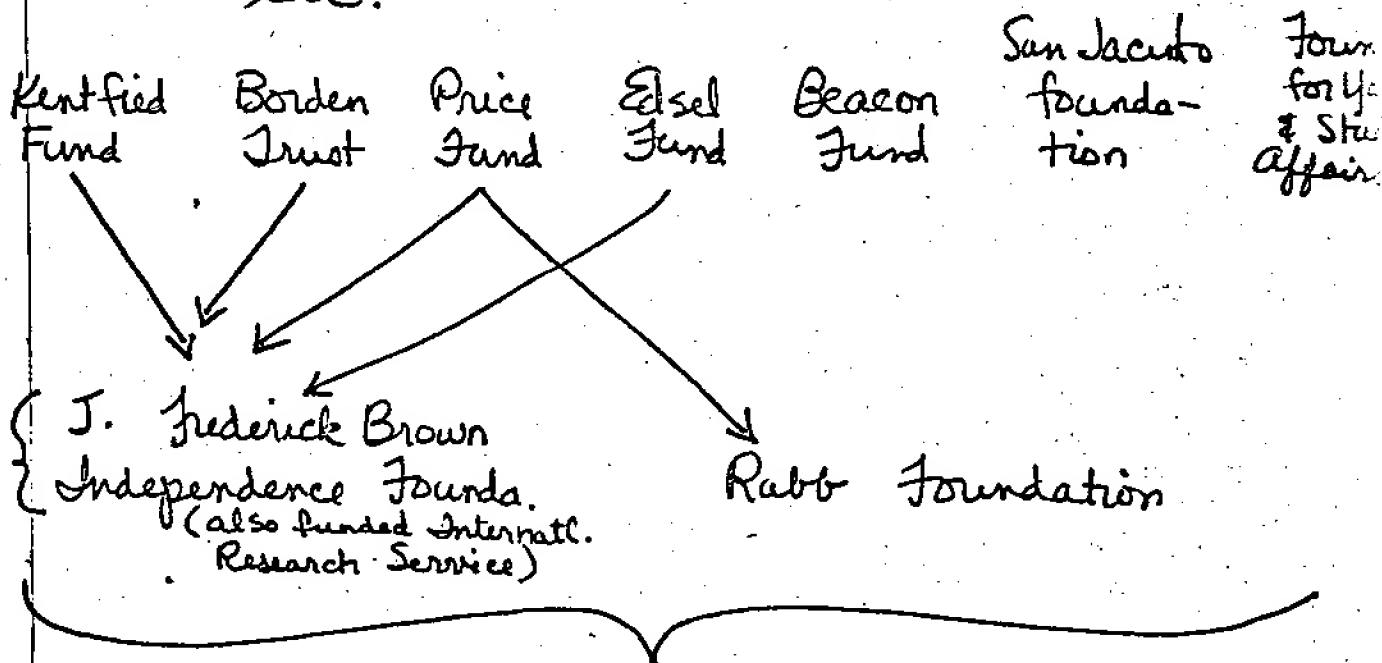 Kentfied
Fund
Borden
Trust
Price
Fund
Edsel
Fund
Beacon
Fund
San Jacuito
founda-
tion
for
&
Affair
J. Frederick Brown
Independence Founda.
(also funded Internatl.
Research Service)
Rabb Foundation